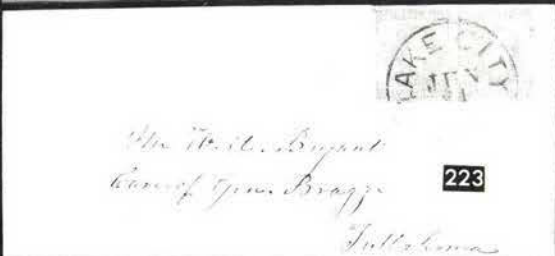 LAKE CITY
JUN
Mr W. C. Bryant
Care of Genl Bragg
223
Tullahoma